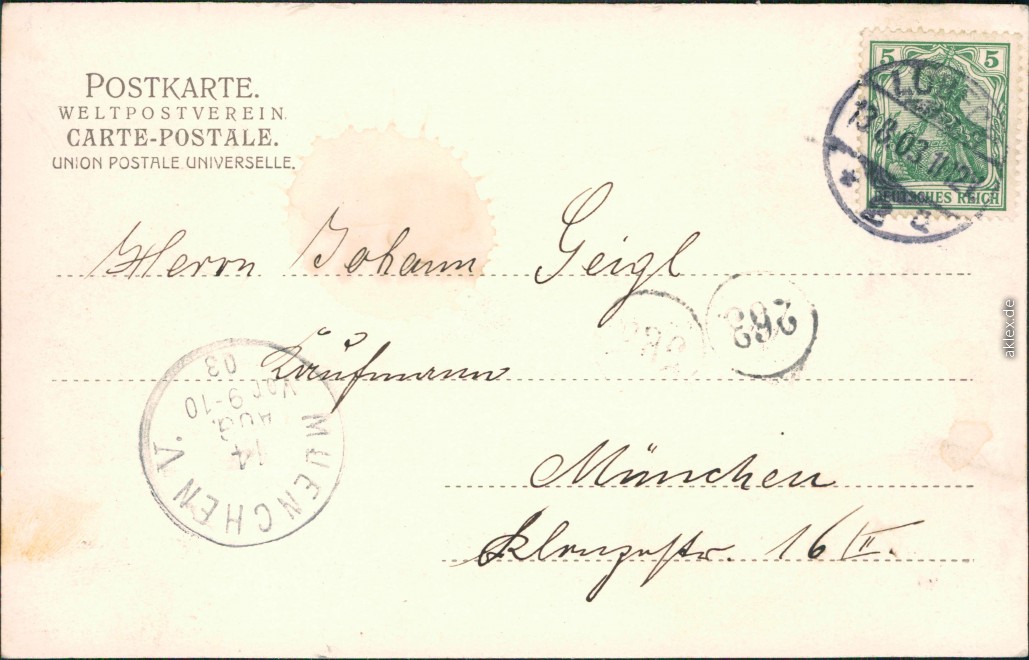 POSTKARTE.
WELTPOSTVEREIN.
CARTE-POSTALE.
UNION POSTALE UNIVERSELLE.
5 5
DEUTSCHES REICH
13.8.03.11-12V.
* 2 d
Herrn Johann Geigl
Kaufmann
München
Klenzestr. 16 II.
262
MUENCHEN V.
14
AUG.
Vor.9-10
03
aklex.de